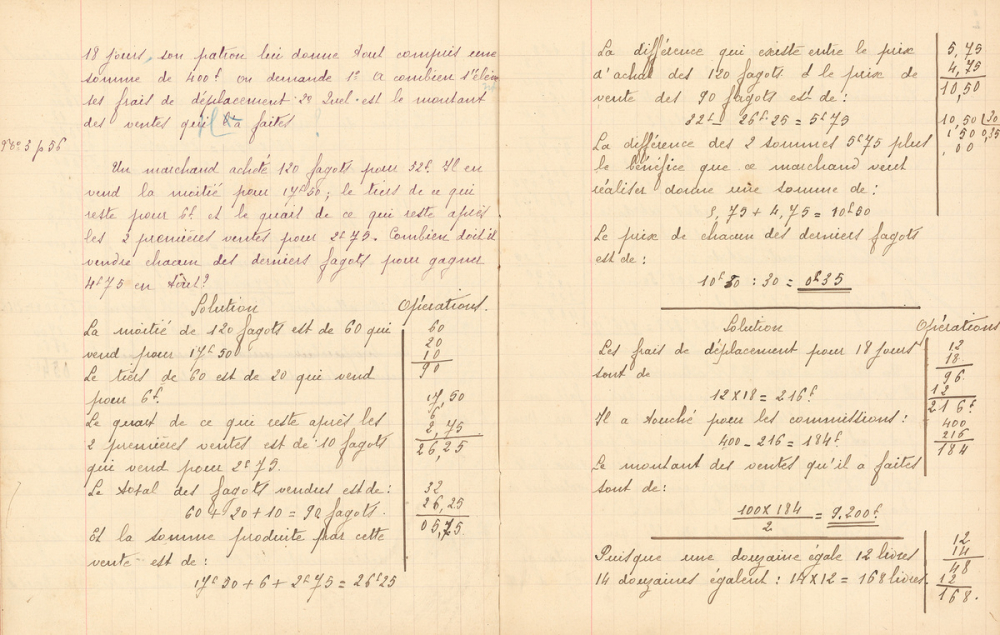 18 jours, son patron lui donne tout compris une
somme de 400f. on demande 1° A combien s'élèv
ses frais de déplacement. 2° Quel est le montant
des ventes qu'il a faites
Un marchand achète 120 fagots pour 32f. Il en
vend la moitié pour 17f50; le tiers de ce qui
reste pour 6f. et le quart de ce qui reste après
les 2 premières ventes pour 2f75. Combien doit il
vendre chacun des derniers fagots pour gagner
4f75 en tout?
Solution
Opérations.
La moitié de 120 fagots est de 60 qui
vend pour 17f50
Le tiers de 60 est de 20 qui vend
pour 6f.
Le quart de ce qui reste après les
2 premières ventes est de 10 fagots
qui vend pour 2f75.
Le total des fagots vendus est de:
60 + 20 + 10 = 90 fagots.
Et la somme produite par cette
vente est de:
17f50 + 6 + 2f75 = 26f25
60
20
10
90
17,50
6
2,75
26,25
32
26,25
05,75
La différence qui existe entre le prix
d'achat des 120 fagots et le prix de
vente des 90 fagots est de:
32f - 26f.25 = 5f75
La différence des 2 sommes 5f75 plus
le bénéfice que ce marchand veut
réaliser donne une somme de:
5,75 + 4,75 = 10f50
Le prix de chacun des derniers fagots
est de:
10f50 : 30 = 0f35
5,75
4,75
10,50
10,50 | 30
1 50 0,35
,00
Solution
Opérations
Les frais de déplacement pour 18 jours
sont de
12 x 18 = 216f
Il a touché pour les commissions:
400 - 216 = 184f.
Le montant des ventes qu'il a faites
sont de:
100 x 184
2
= 9.200f.
12
18
96
12
216f
400
216
184
Puisque une douzaine égale 12 livres
14 douzaines égalent: 14 x 12 = 168 livres.
12
14
48
12
168.